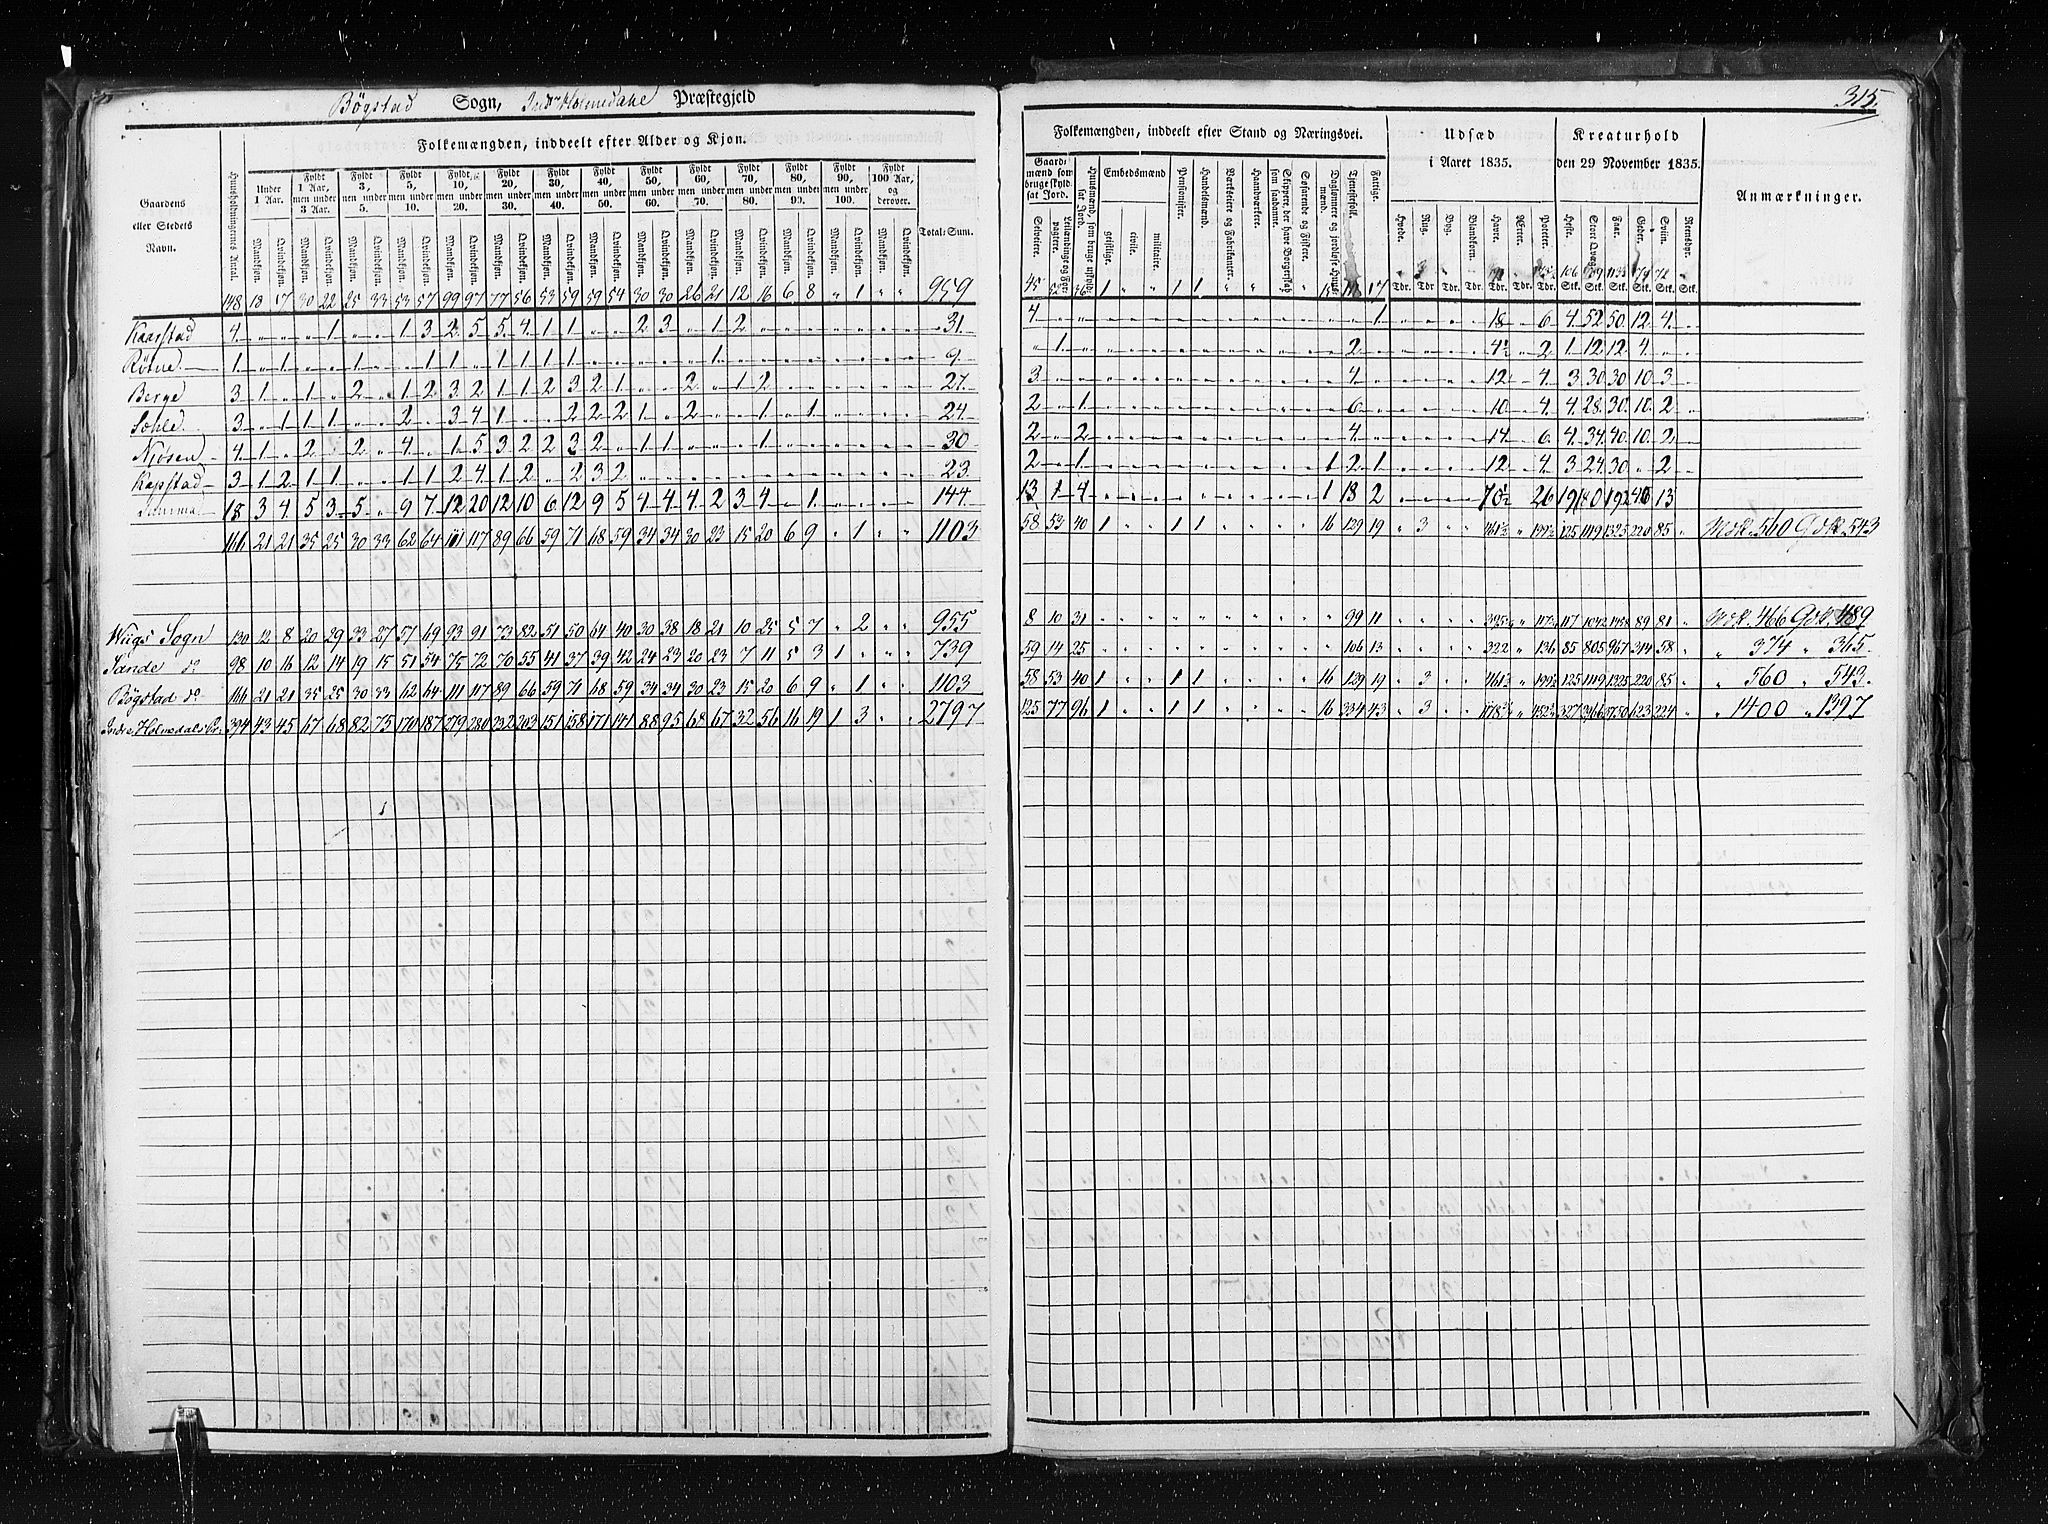 Bögstad Sogn, Indre Holmedahl Præstegjeld
315.
Folkemængden, inddeelt efter Alder og Kjøn.
Folkemængden, inddeelt efter Stand og Næringsvei.
Udsæd i Aaret 1835.
Kreaturhold den 29 November 1835.
Anmærkninger.
Gaardens eller Stedets Navn.
Huusholdningernes Antal.
Under 1 Aar.
Fyldt 1 Aar, men under 3 Aar.
Fyldt 3, men under 5.
Fyldt 5, men under 10.
Fyldt 10, men under 20.
Fyldt 20, men under 30.
Fyldt 30, men under 40.
Fyldt 40, men under 50.
Fyldt 50, men under 60.
Fyldt 60, men under 70.
Fyldt 70, men under 80.
Fyldt 80, men under 90.
Fyldt 90, men under 100.
Fyldt 100 Aar, og derover.
Mandkjøn. Qvindekjøn.
Total-Sum.
Gaardmænd som bruge skyldsat Jord.
Selveiere.
Leilændinge og Forpagtere.
Huusmænd, som bruge uskyldsat Jord.
Embedsmænd
geistlige. civile. militaire.
Pensionister.
Handelsmænd.
Værkseiere og Fabrikanter.
Haandværkere.
Skippere, der have Borgerskab som saadanne.
Søfarende og Fiskere.
Daglønnere og jordløse Huusmænd.
Tjenestefolk.
Fattige.
Hvede. Rug. Byg. Blandkorn. Havre. Ærter. Poteter.
Heste. Stort Qvæg. Faar. Geder. Sviin. Rensdyr.
Tdr. Tdr. Tdr. Tdr. Tdr. Tdr. Tdr. Stk. Stk. Stk. Stk. Stk. Stk.
148 18 17 30 22 25 33 53 57 99 97 77 56 53 59 59 54 30 30 26 21 12 16 6 8 " 1 " " 959
Kaarstad 4 " " " 1 " " 1 3 2 5 5 4 1 1 " " 2 3 " 1 2 " " " " " " " 31. 4 1 18 " 6 4 52 50 12 4
1 1 1 1 1 1 1 1 1 1 1 9. 1 2 4½ " 2 1 12 12 4
Berge 3 1 " 1 " 2 " 1 2 3 2 1 1 2 3 2 1 " " 2 " 1 2 27. 3 4 12 4 3 30 30 10 3
3 " 1 1 1 " " 2 " 3 4 1 " " 2 2 2 1 " 2 " " 1 " 1 24. 2 " 1 6 10 4 4 28 30 10 2
Njøsen 4 1 " 2 " 2 " 4 " 1 5 3 2 2 3 2 " 1 1 " " " 1 30 2 " 2 4 14 6 4 34 40 10 2
Kapstad 3 1 2 1 1 " " 1 1 2 4 1 2 " 2 3 2 23. 2 " 1 1 2 1 12 4 3 24 30 " 2
Summa 18 3 4 5 3 5 " 9 7 12 20 12 10 6 12 9 5 4 4 4 2 3 4 " 1 144 13 1 4 1 18 2 70½ 26 19 180 192 46 13
166 21 21 35 25 30 33 62 64 111 117 89 66 59 71 68 59 34 34 30 23 15 20 6 9 " 1 " " 1103 58 53 40 1 " " 1 1 16 129 19 " 3 461½ " 199½ 125 1119 1325 220 85 " Mdk. 560 Qdk. 543
Wiigs Sogn 130 12 8 20 29 33 27 57 69 93 91 73 82 51 50 64 40 30 38 18 21 10 25 5 7 " 2 " " 955 8 10 31 99 11 117 1042 1458 89 81 " Mdk. 466 Qdk. 489
Sande do 98 10 16 12 14 19 15 51 54 75 72 70 55 41 37 39 42 24 23 20 23 7 11 5 3 1 " " " 739 59 14 25 106 13 322 " 136 85 805 967 314 58 " " 374 " 365
Bögstad do 166 21 21 35 25 30 33 62 64 111 117 89 66 59 71 68 59 34 34 30 23 15 20 6 9 " 1 " " 1103 58 53 40 1 " " 1 1 16 129 19 " 3 461½ " 199½ 125 1119 1325 220 85 " " 560 " 543
Indre Holmedals Pr: 394 43 45 67 68 82 75 170 187 279 280 232 203 151 158 171 141 88 95 68 67 32 56 16 19 1 3 " " 2797 125 77 96 1 " " 1 1 16 334 43 " 3 327 2966 3750 623 224 " " 1400 " 1397